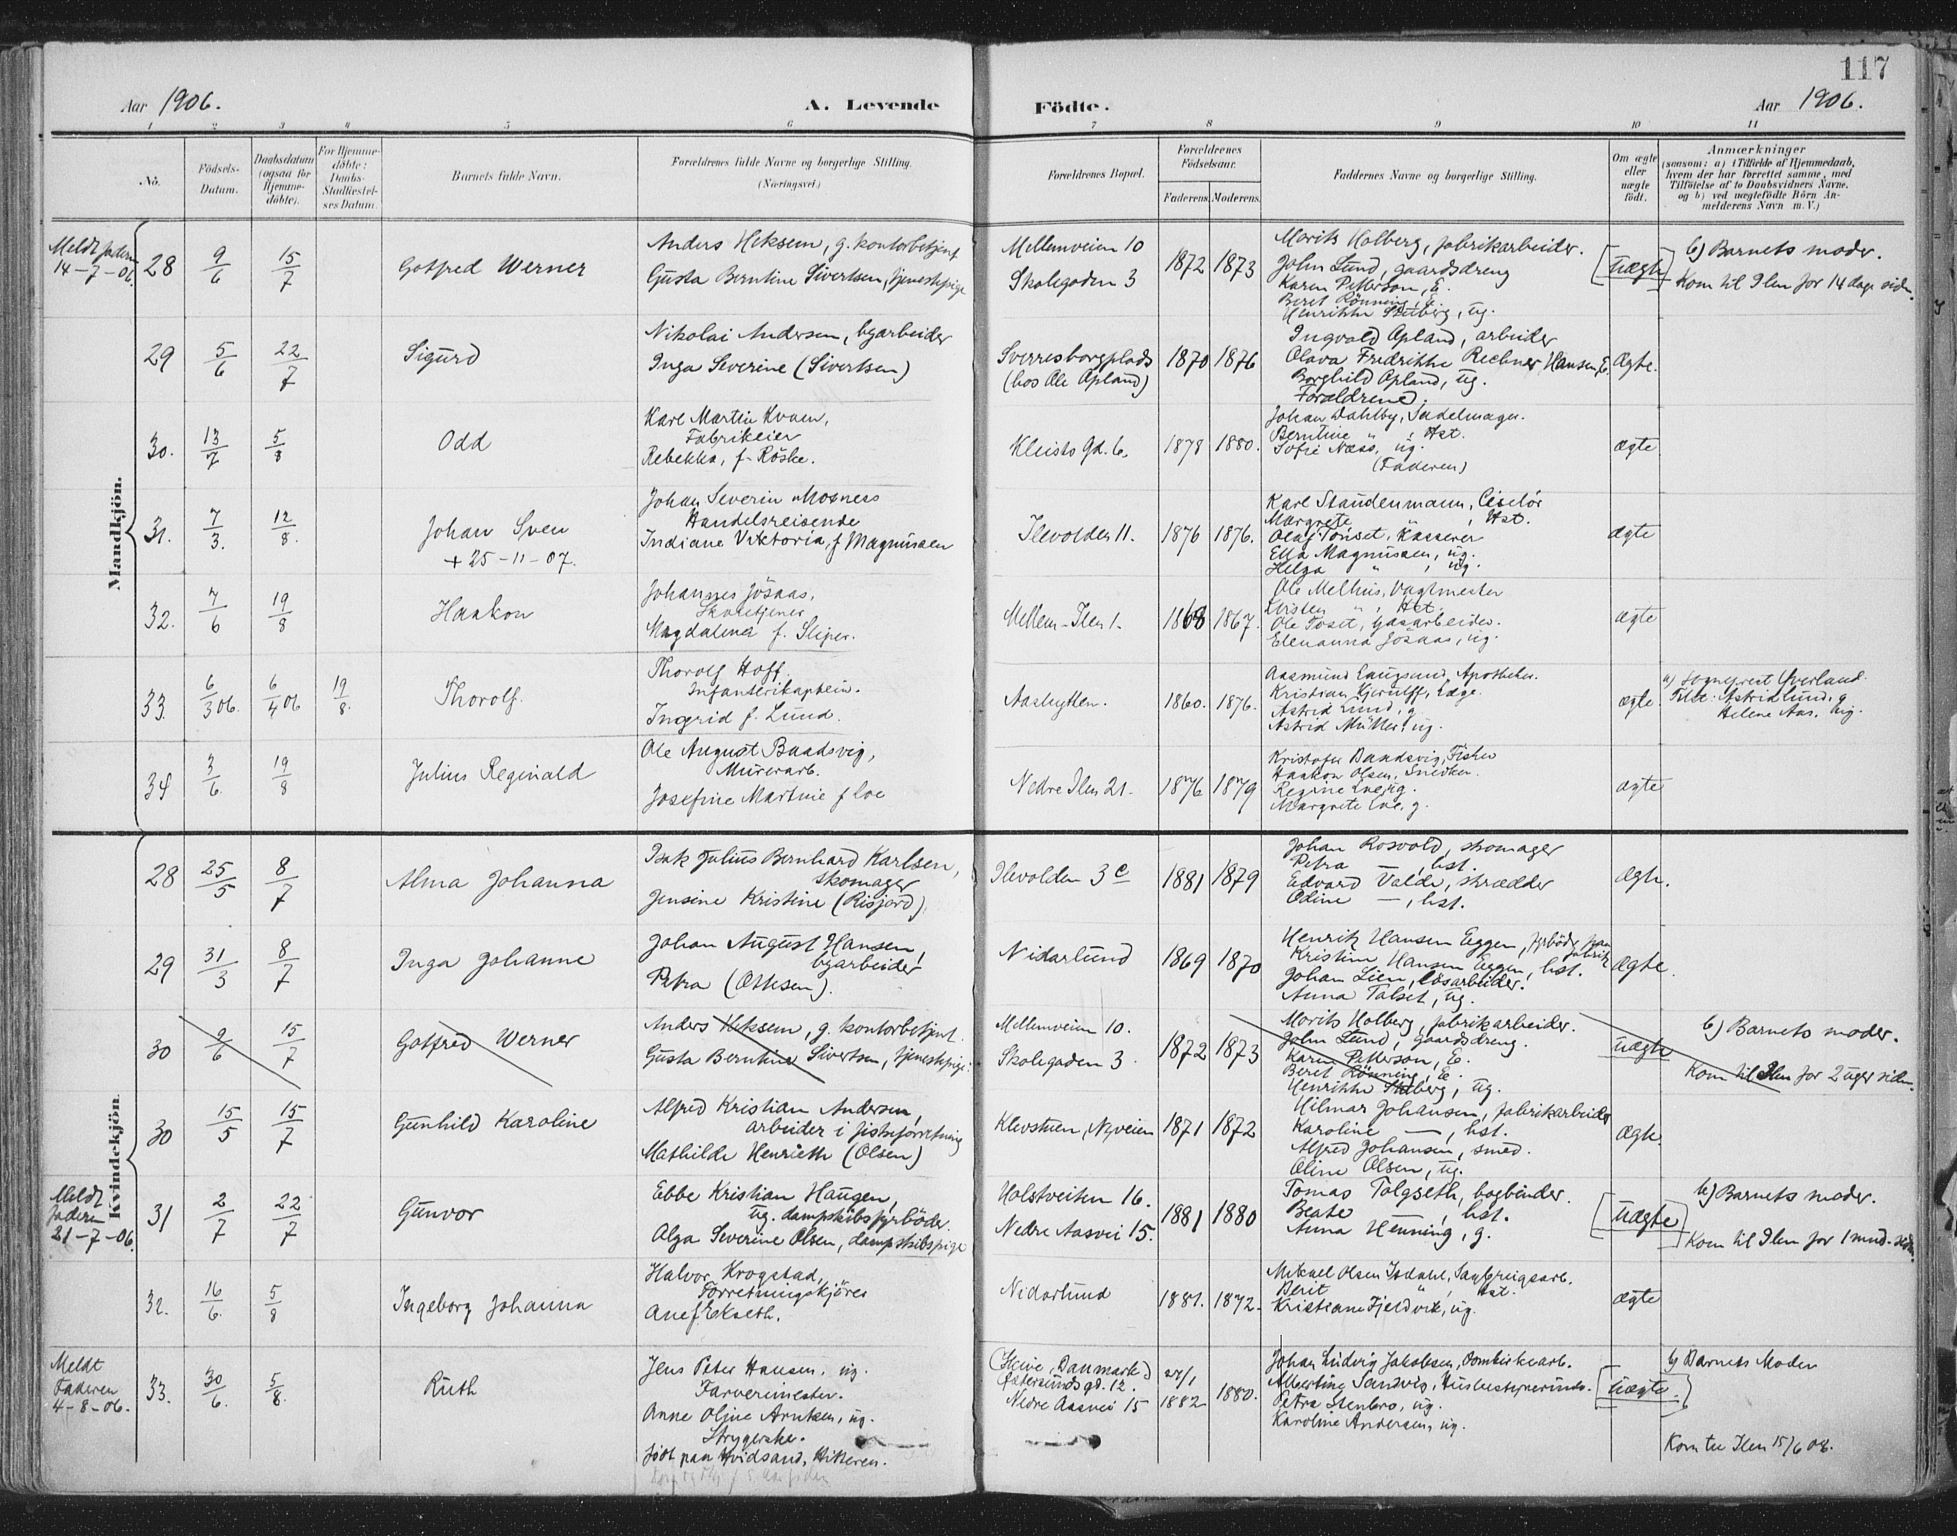 117
Aar 1906.
A. Levende Födte.
Aar 1906.
1 2 3 4 5 6 7 8 9 10 11
No.
Födsels-Datum.
Daabsdatum (ogsaa for Hjemme-döbte).
For Hjemme-döbte:
Barnets fulde Navn.
Forældrenes fulde Navne og borgerlige Stilling.
(Næringsvei.)
Forældrenes Bopæl.
Forældrenes Födselsaar.
Faderens. Moderens.
Faddernes Navne og borgerlige Stilling.
Om ægte eller uægte födt.
Anmærkninger
(saasom: a) i Tilfælde af Hjemmedaab, hvem der har forrettet samme, med Tilföielse af to Daabsvidners Navne, og b) ved uægtefödte Börn Anmelderens Navn m. V.)
Mandkjön.
Meldt faderen
14-7-06.
28 9/6 15/7 Gotfred Werner
Anders Heksem, g. kontorbetjent
Gusta Berntine Sivertsen, tjenestepige
Mellemveien 10
Skolegaden 3
1872 1873
Morits Holberg, fabrikarbeider.
John Lund, gaardsdreng
Karen Petterson, E.
Beret Rönning, E.
Henrikke Stuberg, ug.
uægte
b) Barnets moder.
Kom til Ilen for 14 dage siden.
29 5/6 22/7 Sigurd
Nikolai Andersen, byarbeider
Inga Severine (Sivertsen)
Sverresborgplads
(hos Ole Opland)
1870 1876
Ingvald Opland, arbeider
Olava Fredrikke Rechner Hansen, E.
Borghild Opland, ug.
Forældrene.
Ægte.
30. 13/7 5/8 Odd
Karl Martin Kvaen,
Fabrikeier
Rebekka, f. Röske.
Kleists Gd. 6.
1878 1880.
Johan Dahlby, Sadelmager.
Berntine " Hst.
Sofie Næss, ug.
(Faderen)
ægte
31. 7/3. 12/8. Johan Sven
+ 25-11-07.
Johan Severin Mosness
Handelsreisende
Indiane Viktoria, f Magnussen
Ilevolden 11.
1876 1876.
Karl Staudenmann, Ciselör
Margrete " , Hst.
Olaf Tönset, Kasserer
Ella Magnussen, ug.
Helga " , ug.
ægte
32. 7/6 19/8 Haakon
Johannes Jösaas,
Magdalena f. Sliper.
Mellem-Ilen 1.
1868 1867.
Ole Melhus, Vagtmester
Kirsten " , Hst.
Ole Toset, Gasarbeider.
Elenanna Jösaas, ug.
ægte
33. 6/3 06. 6/4 06 19/8. Thorolf.
Thorolf Hoff.
Infanterikaptein.
Ingrid f. Lund.
Aashytten.
1860. 1876.
Aasmund Laugsund, Apotheker.
Kristian Kjerulff, Læge.
Astrid Lund, g.
Astrid Müller, ug.
ægte
a) Sognepræst Överland.
Astrid Lund, g
Helene Aas, ug.
34 3/6. 19/8 Julius Reginald
Ole August Baadsvig,
Murerarb.
Josefine Martine f Loe
Nedre Ilen 21.
1876 1879
Kristofer Baadsvig, Fisker
Haakon Olsen, Snedker.
Regine Loe, g.
Margrete Loe, g.
ægte
Kvindekjön.
28 25/5 8/7 Alma Johanna
Isak Julius Bernhard Karlsen,
skomager
Jensine Kristine (Risjord)
Ilevolden 3c
1881 1879
Johan Rosvold, skomager
Petra — , hst.
Edvard Valde, skrædder
Odine — , hst.
Ægte.
29 31/3 8/7 Inga Johanne
Johan August Hansen,
byarbeider
Petra (Ottesen).
Nidarlund
1869 1870
Henrik Hansen Eggen, fyrböder
Kristine Hansen Eggen, hst.
Johan Lien, lösarbeider.
Anna Talset, ug.
Ægte.
30 9/6 15/7 Gotfred Werner
Anders Heksem, g. kontorbetjent.
Gusta Berntine Sivertsen, tjenestepige.
Mellemveien 10.
Skolegaden 3.
1872 1873
Morits Holberg, fabrikarbeider.
John Lund, gaardsdreng.
Karen Petterson, E.
Beret Rönning, E.
Henrikke Stuberg, ug.
uægte
b) Barnets moder.
Kom til Ilen for 2 uger siden.
30 15/5 15/7 Gunhild Karoline
Alfred Kristian Andersen,
arbeider i fiskeforretning
Mathilde Henriette (Olsen)
Klevstuen, Nyveien
1871 1872
Hilmar Johansen, fabrikarbeider
Karoline — , hst.
Alfred Johansen, smed.
Oline Olsen, ug.
Ægte.
Meldt
faderen
21-7-06.
31 2/7 22/7 Gunvor
Ebbe Kristian Haugen,
ug. dampskibsfyrböder.
Olga Severine Olsen, dampskibspige
Holstveiten 16.
Nedre Aasvei 15.
1881 1880
Tomas Tolgseth, bogbinder.
Beate — , hst.
Anna Henning, g.
uægte
b) Barnets moder.
Kom til Ilen for 1 mnd. siden.
32. 16/6. 5/8 Ingeborg Johanna
Halvor Krogstad,
Forretningskjörer
Ane f. Ekseth.
Nidarlund
1881. 1872.
Mikael Olsen Isdahl, Sagbrugsarb.
Berit " , Hst.
Kristiane Fjeldvik, ug.
ægte
Meldt
Faderen
4-8-06.
33. 30/6. 5/8. Ruth
Jens Peter Hansen, ug.
Farvermester.
Anne Oline Arntsen, ug.
Strygerske.
födt paa Kvidsand, Hitteren.
(Skive, Danmark)
Östersundsgd. 12.
Nedre Aasvei 15
27/1 1882 1880.
Johan Ludvig Jakobsen, Domkirkearb.
Albertine Sandvig, Husbestyrerinde.
Petra Stenbro, ug.
Karoline Andersen, ug.
uægte.
b) Barnets Moder
Kom til Ilen 15/6 06.